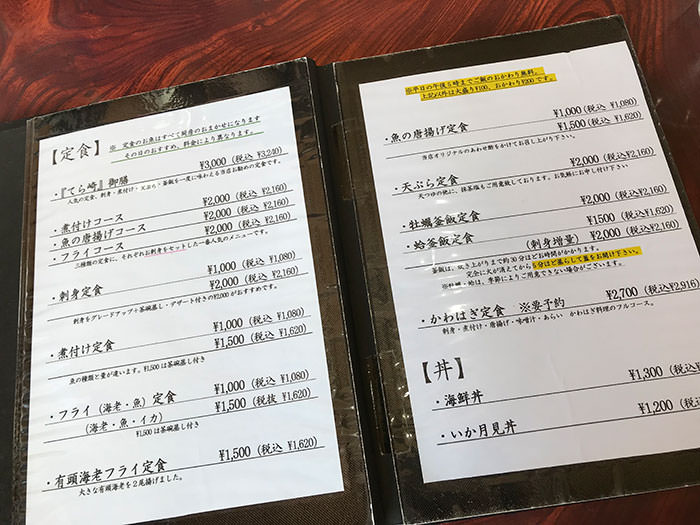 【定食】
※ 定食のお魚はすべて同席のおまかせになります
その日のおすすめ、料金により異なります。
・『てら崎』御膳 ¥3,000 (税込 ¥3,240)
人気の定食、刺身・煮付け・天ぷら・釜飯を一度に味わえる当店お勧めの定食です。
・煮付けコース ¥2,000 (税込 ¥2,160)
・魚の唐揚げコース ¥2,000 (税込 ¥2,160)
・フライコース ¥2,000 (税込 ¥2,160)
三種類の定食に、それぞれお刺身をセットした一番人気のメニューです。
・刺身定食 ¥1,000 (税込 ¥1,080)
¥2,000 (税込 ¥2,160)
刺身をグレードアップ+茶碗蒸し・デザート付きの¥2,000がおすすめです。
・煮付け定食 ¥1,000 (税込 ¥1,080)
¥1,500 (税込 ¥1,620)
魚の種類と量が違います。¥1,500は茶碗蒸し付き
・フライ (海老・魚) 定食 ¥1,000 (税込 ¥1,080)
(海老・魚・イカ) ¥1,500 (税抜 ¥1,620)
¥1,500は茶碗蒸し付き
・有頭海老フライ定食 ¥1,500 (税込 ¥1,620)
大きな有頭海老を2尾揚げました。
※平日の午後5時までご飯のおかわり無料。
上記以外は大盛り¥100、おかわり¥200です。
・魚の唐揚げ定食 ¥1,000 (税込 ¥1,080)
¥1,500 (税込 ¥1,620)
当店オリジナルのあわせ酢をかけてお召し上がり下さい。
・天ぷら定食 ¥2,000 (税込 ¥2,160)
天つゆの他に、抹茶塩もご用意致しております。お気軽にお申し付け下さい
・牡蠣釜飯定食 ¥2,000 (税込 ¥2,160)
・蛤釜飯定食 ¥1500 (税込 ¥1,620)
(刺身増量) ¥2,000 (税込 ¥2,160)
釜飯は、炊き上がりまで約30分ほどお時間がかかります。
完全に火が消えてから5分ほど蒸らして蓋をお開け下さい。
季節によりご用意できない場合がございます。
・かわはぎ定食 ※要予約 ¥2,700 (税込 ¥2,916)
刺身・煮付け・唐揚げ・味噌汁・あらい かわはぎ料理のフルコース。
【丼】
・海鮮丼 ¥1,300 (税込
・いか月見丼 ¥1,200 (税込